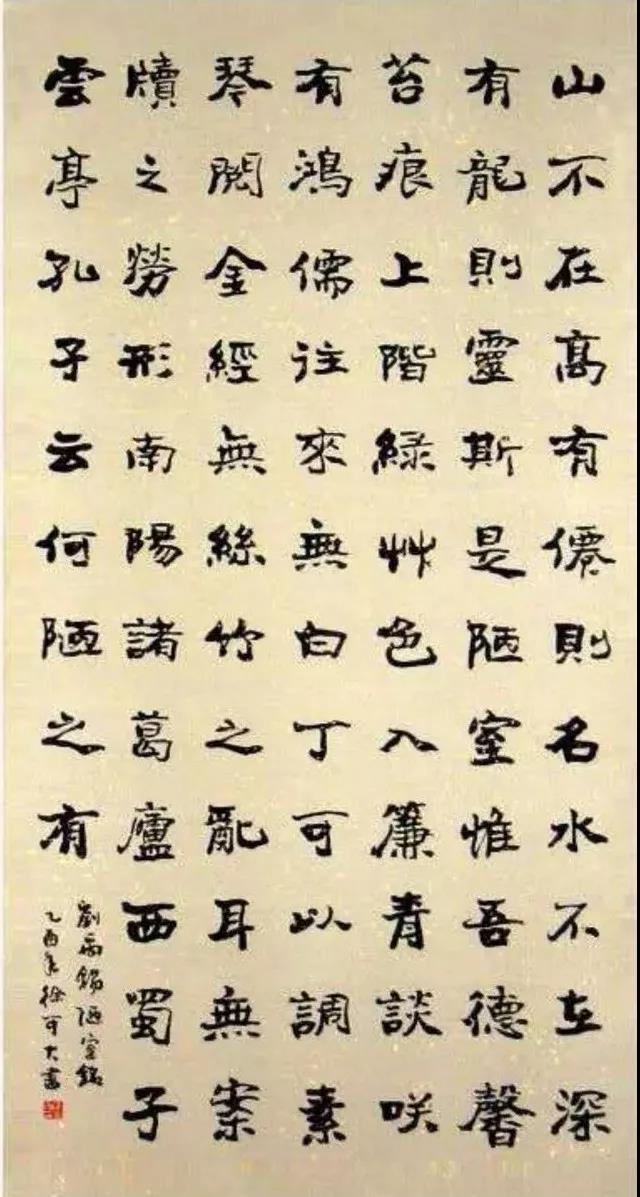 山不在高有僊則名水不在深
有龍則靈斯是陋室惟吾德馨
苔痕上階綠艸色入簾青談咲
有鴻儒往來無白丁可以調素
琴閱金經無絲竹之亂耳無案
牘之勞形南陽諸葛廬西蜀子
雲亭孔子云何陋之有
劉禹錫陋室銘
乙酉年徐可大書